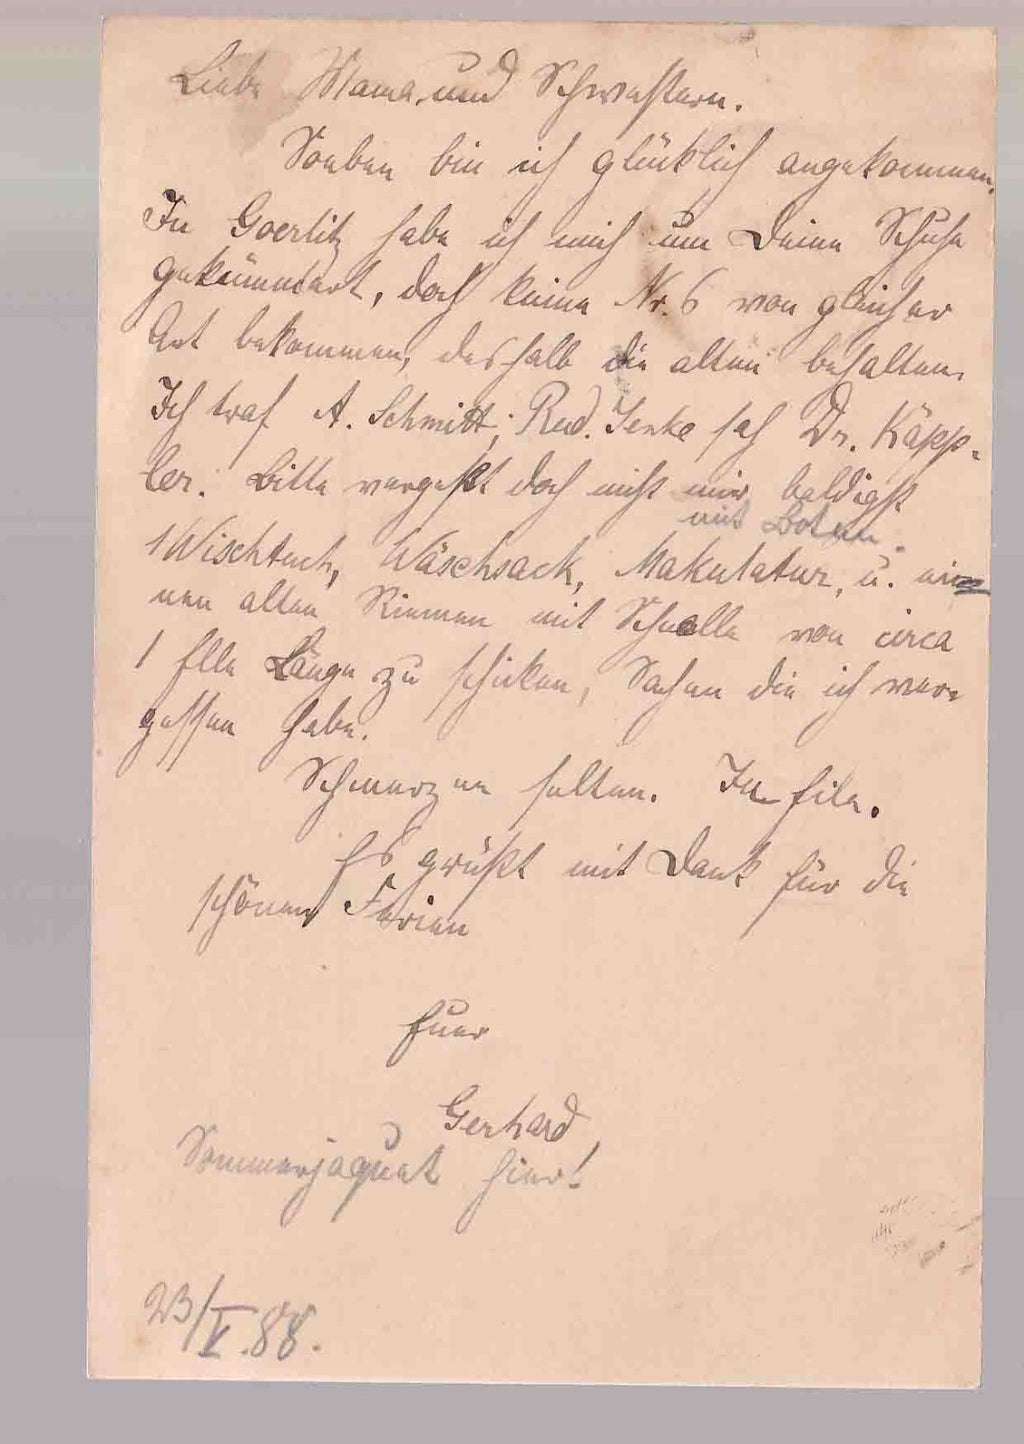 Liebe Mama und Schwestern.
Soeben bin ich glücklich angekommen.
In Goerlitz habe ich mich um Deine Schuhe
gekümmert, doch keine Nr. 6 von gleicher
Art bekommen, deshalb die alten behalten.
Ich traf A. Schmitt; Rud. Jenke sah Dr. Käpp-
ler. Bitte vergeßt doch nicht mir baldigst
mit Boten.
1 Wischtuch, Wäschsack, Makulatur, u. ei
nen alten Riemen mit Schnalle von circa
1 Elle Länge zu schicken, Sachen die ich ver-
gessen habe.
Schmerzen selten. In Eile.
Es grüßt mit Dank für die
schönen Ferien
Euer
Gerhard,
Sommerjaquet hier!
23/V.88.